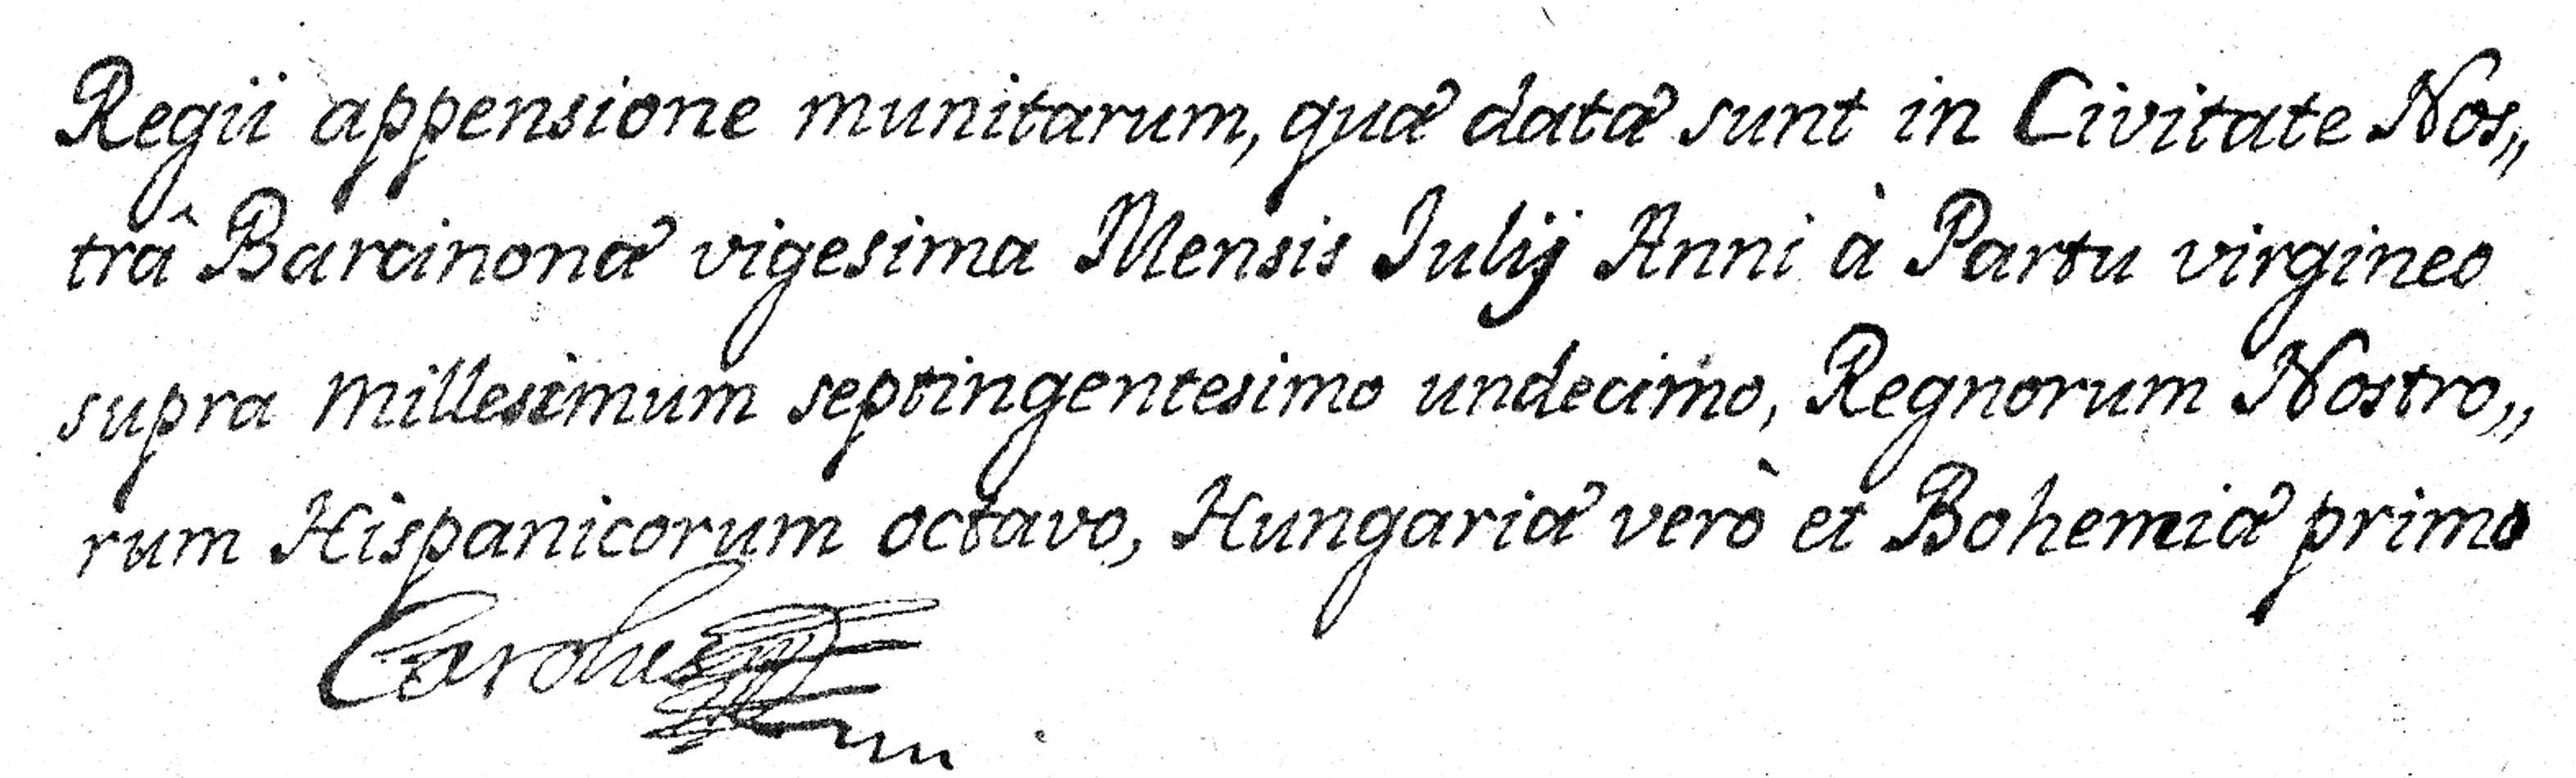 Regii appensione munitarum, quæ datæ sunt in Civitate Nos„
trâ Barcinonæ vigesima Mensis Iulij Anni à Partu virgineo
supra millesimum septingentesimo undecimo, Regnorum Nostro„
rum Hispanicorum octavo, Hungariæ verò et Bohemiæ primo
Carolus